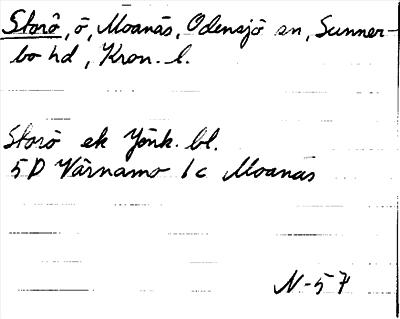 Storö, ö, Moanäs, Odensjö sn, Sunner-
bo hd, Kron. l.
Storö ek Jönk. bl.
5D Värnamo 1c Moanäs
N-57